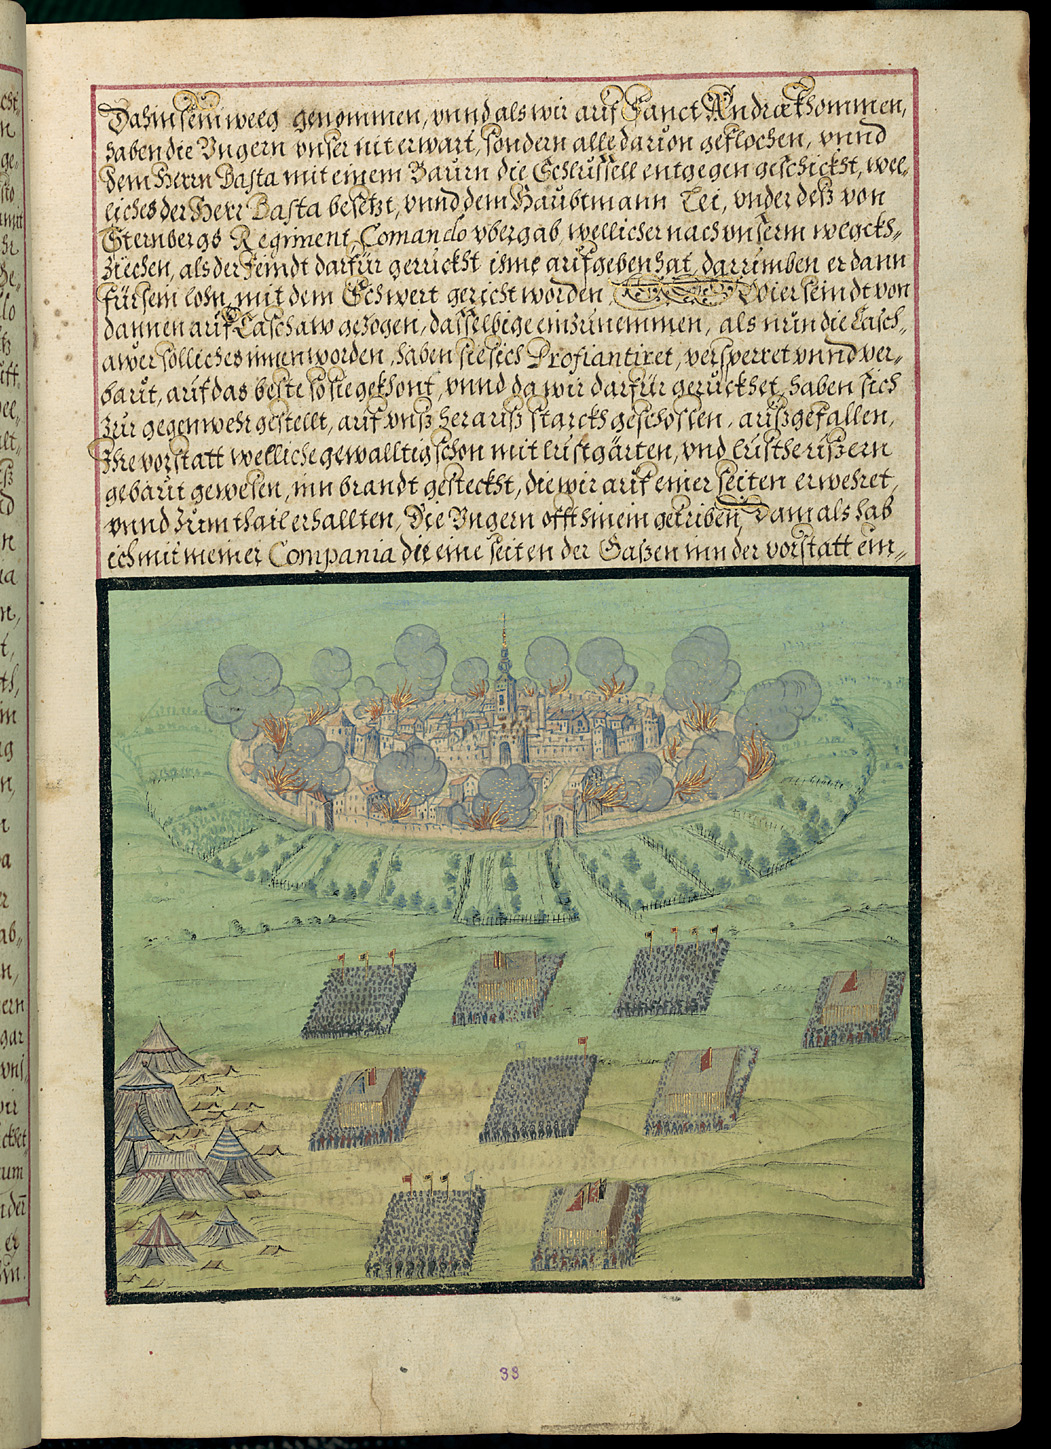 Dahin sein weeg genommen, vnnd als wir auf Sanct Andrae khommen,
haben die Vngern vnser nit erwart, sondern alle daruon geflochen, vnnd
dem Herrn Basta mit einem Baurn die Schlüssell entgegen geschickht, wel-
liches der Herr Basta besetzt, vnnd dem Haubtmann Lei, vnder deß von
Sternbergs Regiment Comando vbergab, wellicher nach vnserm wegckh-
ziechen, als der feindt darfür geruckht ihme aufgeben hat, darumben er dann
für sein lohn, mit dem Schwert gericht worden Wier seindt von
dannen auf Caschaw gezogen, dasselbige einzunemmen, als nun die Casch-
awer solliches innen worden, haben sie sich Profiantiret, versperret vnnd ver-
baut, auf das beste so sie gekhont, vnnd da wir darfür geruckhet, haben sich
zur gegenwehr gestellt, auf vnß herauß starckh geschossen, außgefallen,
Ihre vorstatt welliche gewalltig schon mit lustgärten, vnd lustheüßern
gebaut gewesen, inn brandt gesteckht, die wir auf einer seiten erwehret,
vnnd zum thail erhallten, Die Vngern offt hinein getriben, Damals hab
ich mit meiner Compania die eine seiten der Gaßen inn der vorstatt ein-
33